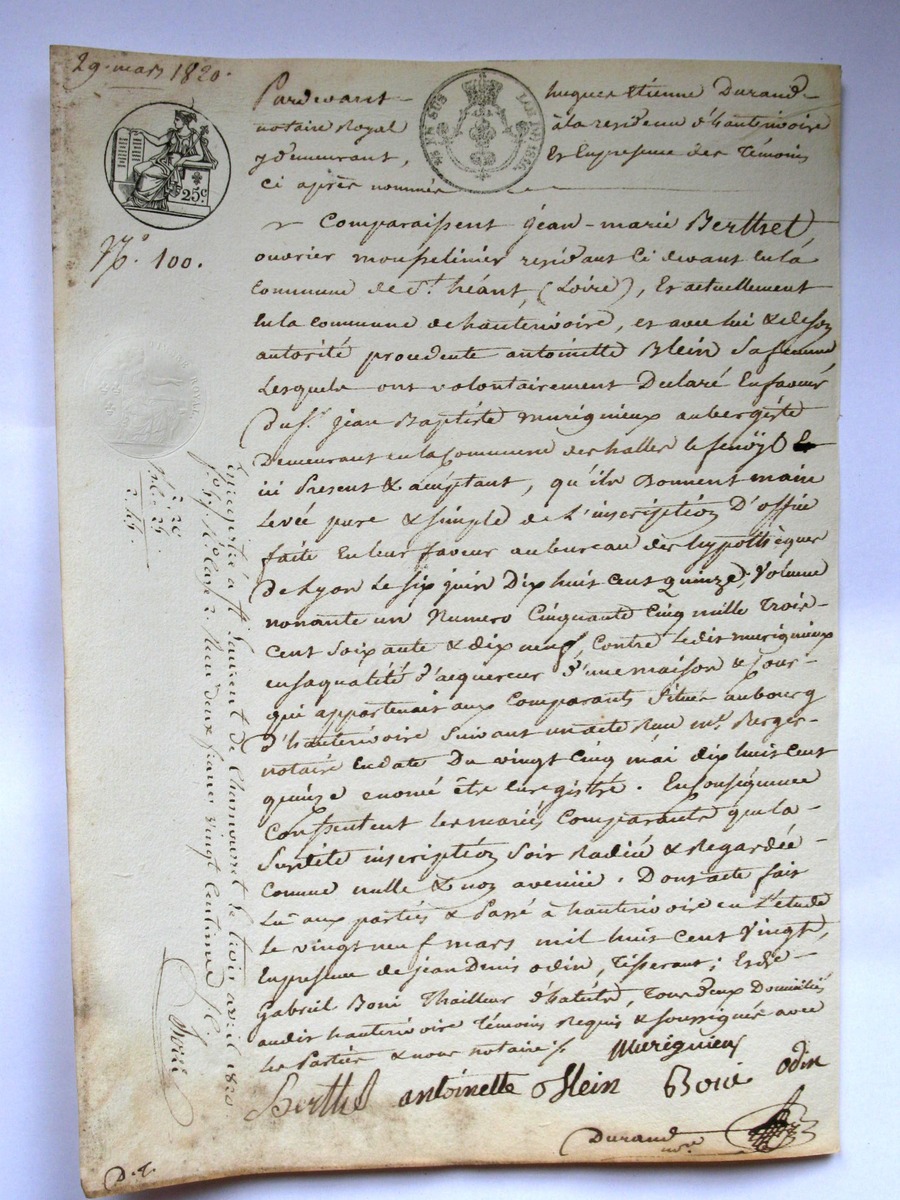 29. mars 1820.
Pardevant hugues Etienne Durand
notaire Royal à la residence d'hauterivoire
y demeurant, Et En presence des Témoins
ci après nommés
25c
Comparaissent jean-marie Berthet
N.o 100.
ouvrier mousselinier residant Ci devant En la
Commune de St. héant, (Loire), Et actuellement
En la commune de hauterivoire, et avec lui & de son
autorité procedente antoinette Blein sa femme
Lesquels ont volontairement Declaré En faveur
Du sr. jean Baptiste murigneux aubergiste
Demeurant en la Commune des halles le fenoÿl
ici Present & acceptant, qu'ils Donnent main
Levée pure & simple de L'inscription D'office
faite En leur faveur au bureau des hypothèques
De Lyon Le six juin Dix huit cent Quinze, Volume
nonante un Numero Cinquante Cinq mille Trois
Cent Soixante & dix neuf, Contre ledit murigneux
en sa qualité d'acquereur d'une maison & Cour
qui appartenait aux Comparants Située au bourg
d'hauterivoire Suivant un acte Reçu me. Berger
notaire En date Du vingt Cinq mai dix huit Cent
quinze enoncé être Enregistré. En Consequence
Consentent les mariés Comparants que la
Susdite inscription Soit Radiée & Regardée
Comme nulle & non avenüe. Dont acte fait
Lu aux parties & Passé à hauterivoire en L'étude
Le vingt neuf mars mil huit Cent Vingt,
En presence de jean Denis odin, Tisserant; Et de
Gabriel Boni Thailleur d'habits, Tous deux Domiciliés
audit hauterivoire Témoins Requis & soussignés avec
les Parties & nous notaire
murigneux
Berthet antoinette Blein Boni odin
Durand nre
Enregistré à St Laurent de Chamousset le trois avril 1820
Reçu deux francs vingt Centimes
D.T.